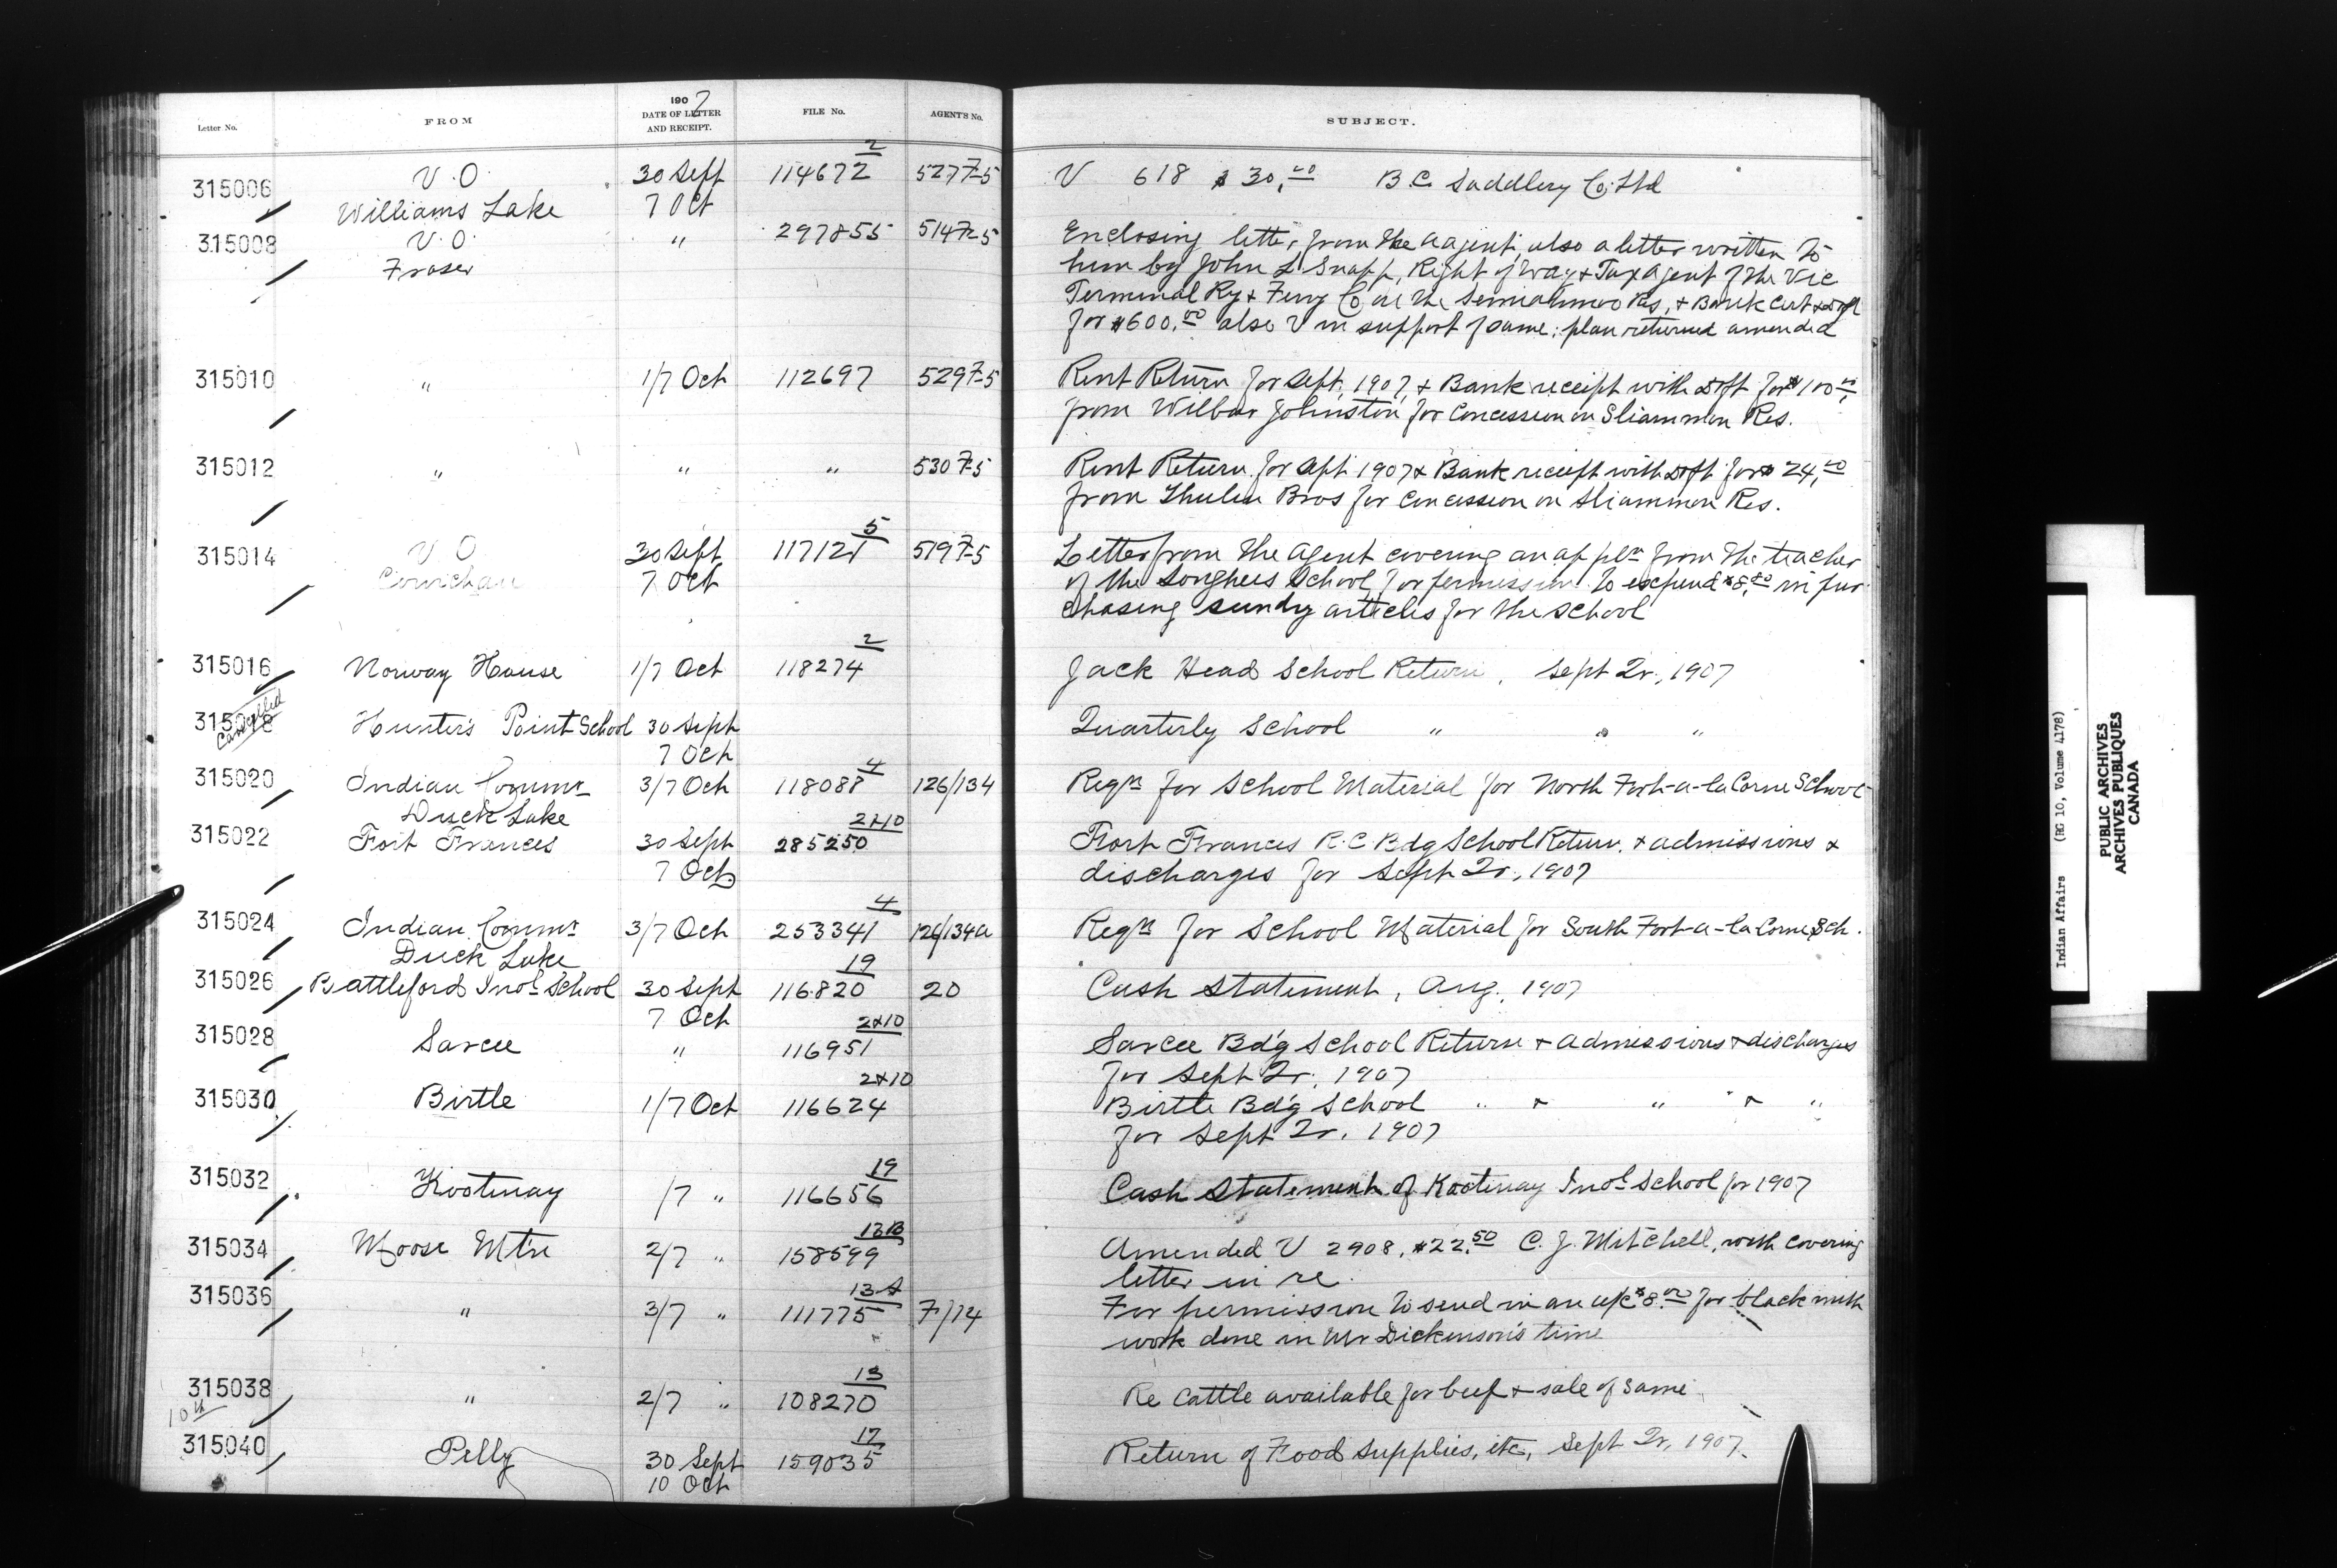 Letter No. FROM 1907 DATE OF LETTER AND RECEIPT. FILE No. AGENT'S No. SUBJECT.
2
315006 V.O. 30 Sept 114672 527 7-5 V 618 $30.00 B.C. Saddlery Co. Ltd
Williams Lake 7 Oct
315008 V.O. " 297855 514 7-5 Enclosing letter from the Agent, also a letter written to
Fraser him by John L Snapp, Right of Way & Tax Agent of the Vic
Terminal Ry & Ferry Co re the Semiahmoo Res, & Bank Cert & Dft
for $600.00 also V in support of same; plan returned amended
315010 " 1/7 Oct 112697 529 7-5 Rent Return for Sept, 1907, & Bank receipt with Dft for $100.00
from Wilbur Johnston for Concession on Sliammon Res.
315012 " " " 530 7-5 Rent Return for Sept 1907 & Bank receipt with Dft for $24.00
from Thulin Bros for Concession on Sliammon Res.
5
315014 V O 30 Sept 117121 519 7-5 Letter from the Agent covering an appln from the teacher
Cowichan 7 Oct of the Songhees School for permission to expend $8.80 in pur-
chasing sundry articles for the school
2
315016 Norway House 1/7 Oct 118274 Jack Head School Return, Sept Qr, 1907
315018 Cancelled Hunter's Point School 30 Sept Quarterly School " " "
7 Oct
4
315020 Indian Commr 3/7 Oct 118088 126/134 Reqn for School Material for North Fort-a-la Corne School
Duck Lake
2 & 10
315022 Fort Frances 30 Sept 285250 Fort Frances R.C. Bdg School Return & admissions &
7 Oct discharges for Sept Qr, 1907
4
315024 Indian Commr 3/7 Oct 253341 126/134a Reqn for School Material for South Fort-a-la Corne Sch.
Duck Lake
19
315026 Battleford Indl School 30 Sept 116820 20 Cash Statement, Aug, 1907
7 Oct
2 & 10
315028 Sarcee " 116951 Sarcee Bd'g School Return & admissions & discharges
for Sept Qr, 1907
2 & 10
315030 Birtle 1/7 Oct 116624 Birtle Bd'g School " & " & "
for Sept Qr, 1907
19
315032 Kootenay /7 " 116656 Cash Statement of Kootenay Indl School for 1907
13B
315034 Moose Mtn 2/7 " 158599 Amended V 2908, $22.50 C. J. Mitchell, with covering
letter in re.
13A
315036 " 3/7 " 111775 7/14 For permission to send in an a/c $8.00 for blacksmith
work done in Mr Dickenson's time
13
315038 " 2/7 " 108270 Re Cattle available for beef & sale of same
10th
17
315040 Pelly 30 Sept 159035 Return of Food Supplies, etc, Sept Qr, 1907.
10 Oct
Indian Affairs (RG 10, Volume 4178)
PUBLIC ARCHIVES
ARCHIVES PUBLIQUES
CANADA